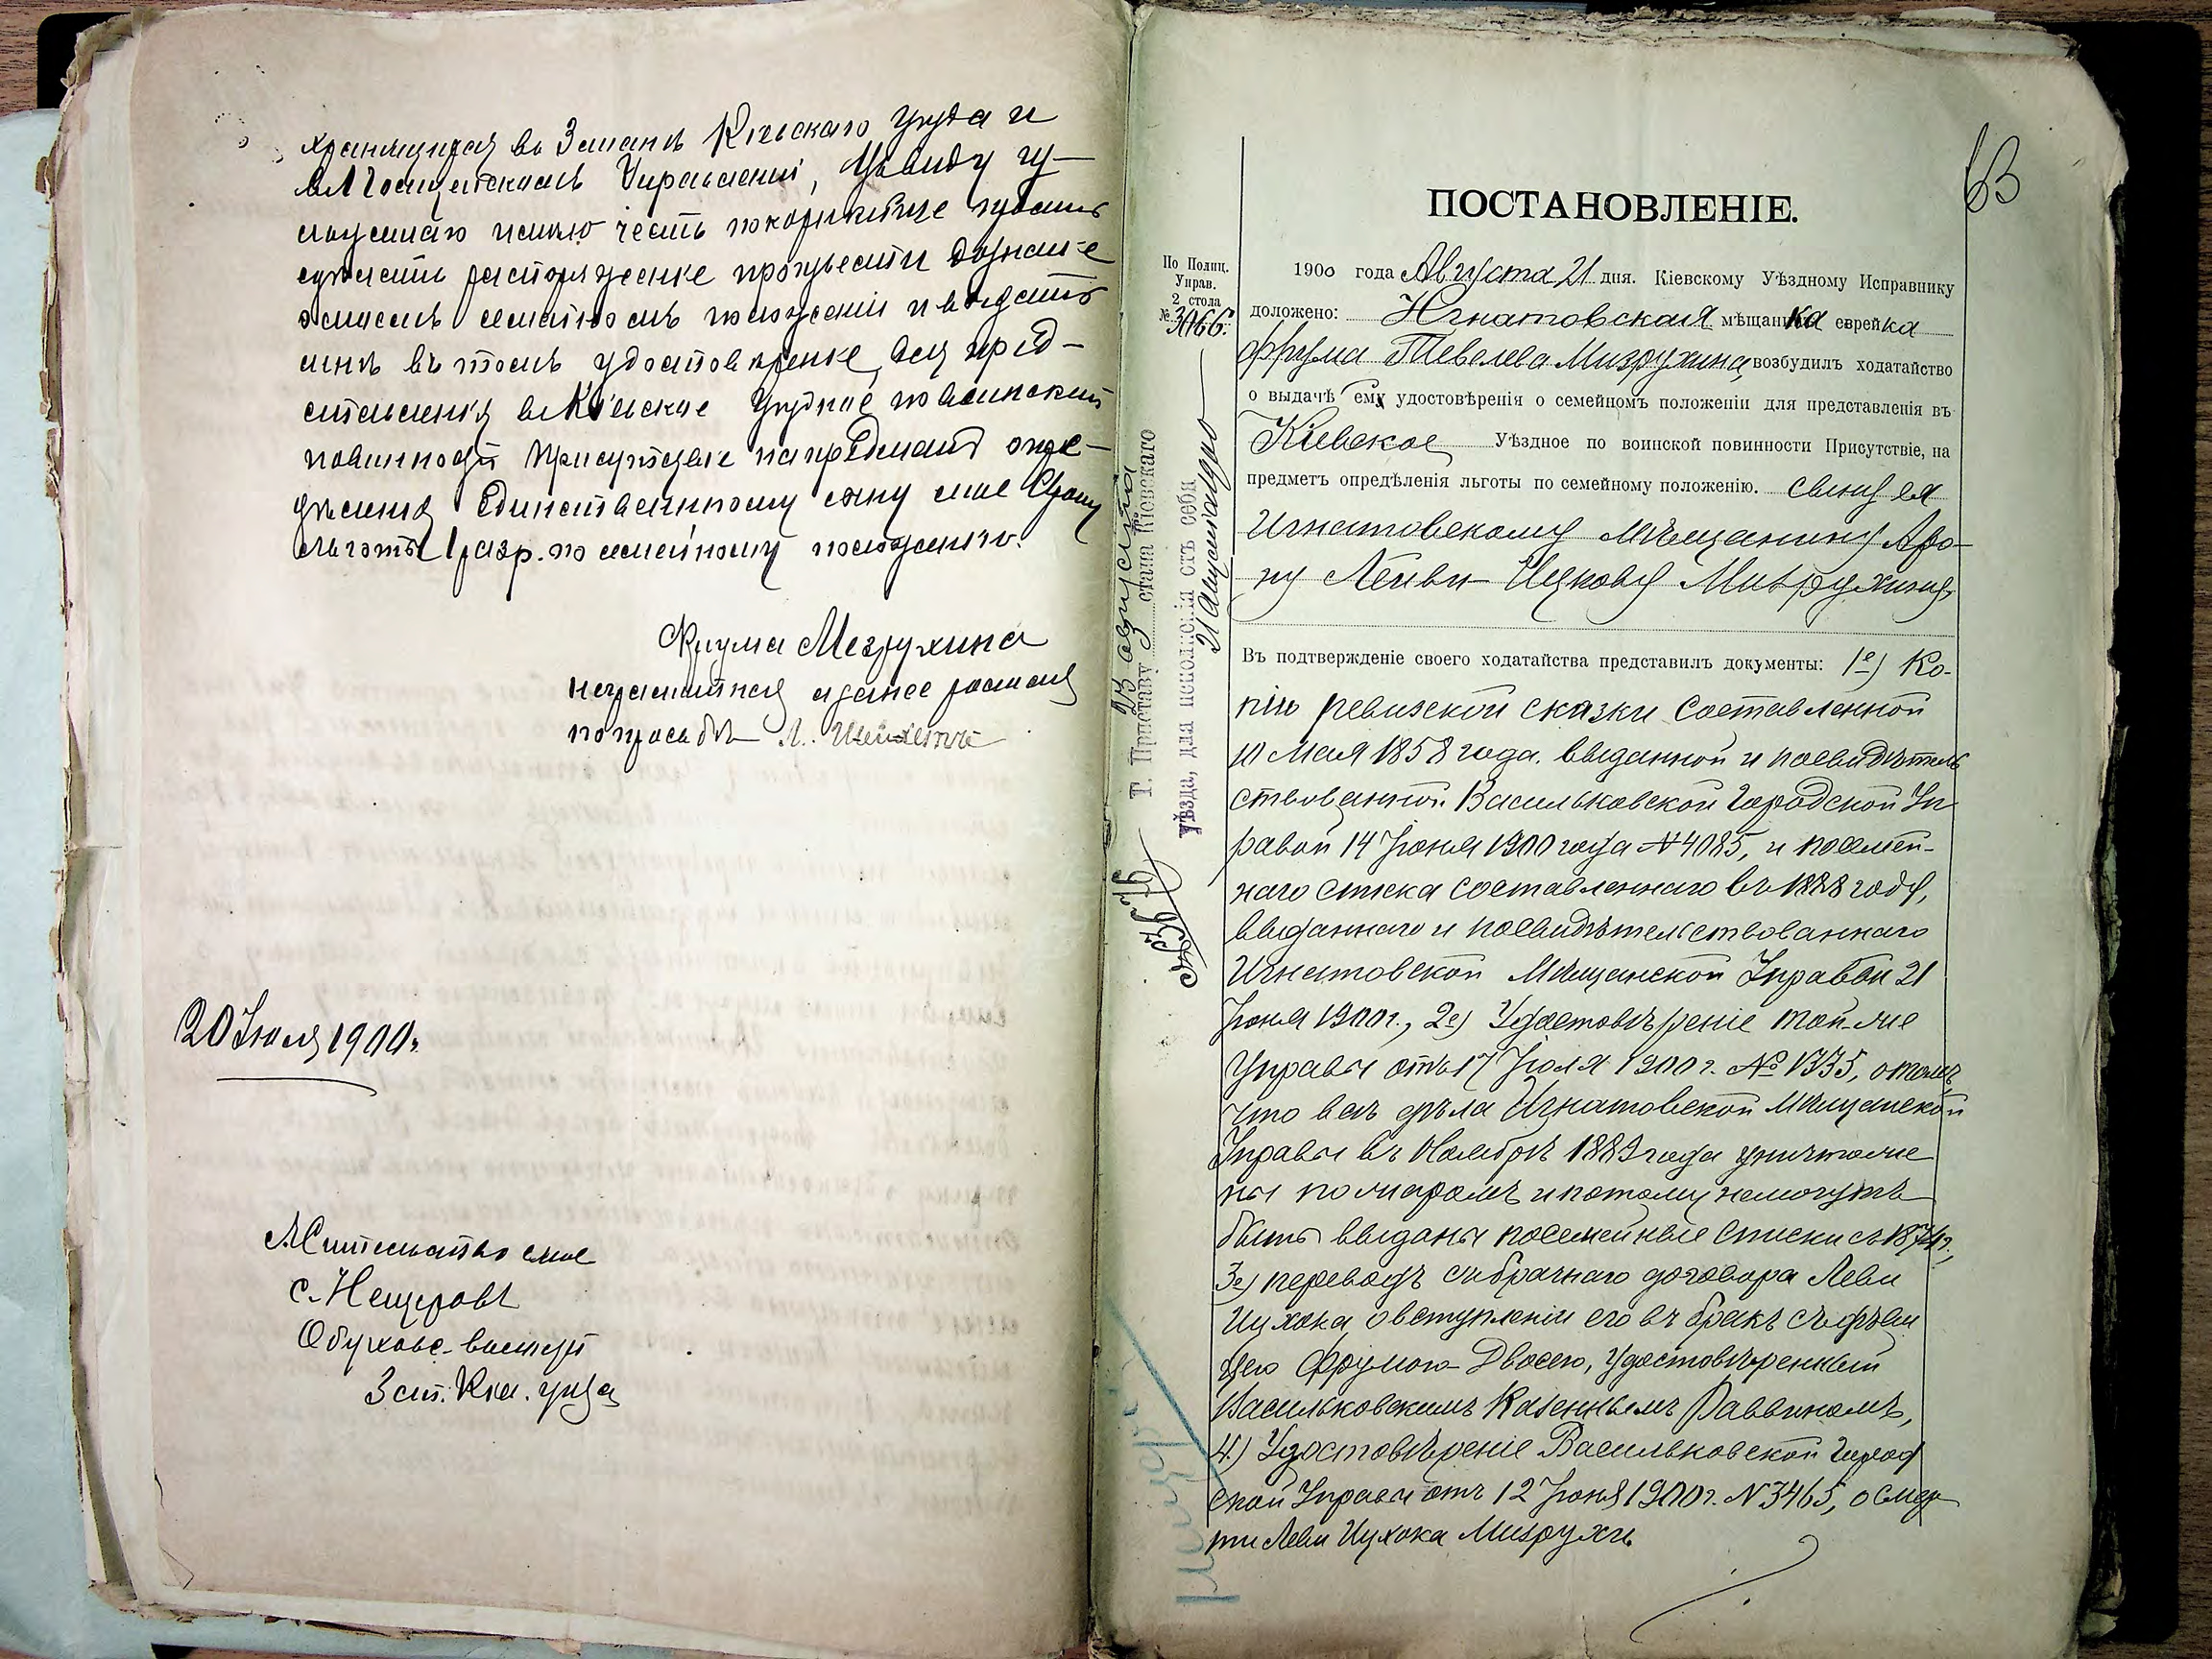 хранящуюся въ 3 станѣ Кіевскаго уѣзда и
Управленіи,
имѣю честь покорнѣйше просить
распоряженіе произвести дознаніе
о моемъ семейномъ положеніи и выдать
мнѣ въ томъ удостовѣреніе для пред-
ставленія въ Кіевское Уѣздное по воинской
повинности Присутствіе на предметъ опре-
дѣленія единственному сыну моему Арону
льготы 1 разр. по семейному положенію.
Фрума Мезрухина
неграмотная а за нее росписался
по просьбѣ
20 Іюля 1900 г.
Жительство мое
с. Нещеровъ
Обуховс. волости
3 ст. Кіев. уѣзда
63
ПОСТАНОВЛЕНІЕ.
По Полиц.
Управ.
2 стола
№ 3066.
1900 года Августа 21 дня. Кіевскому Уѣздному Исправнику
доложено: Игнатовская мѣщанка еврейка
Фрума Тевелева Мизрухина, возбудилъ ходатайство
о выдачѣ ему удостовѣренія о семейномъ положеніи для представленія въ
Кіевское Уѣздное по воинской повинности Присутствіе, на
предметъ опредѣленія льготы по семейному положенію. сыну ея
Игнатовскому мѣщанину Аро-
ну Лейви-Ицкову Мизрухину
Въ подтвержденіе своего ходатайства представилъ документы: 1е) Ко-
пію ревизской сказки составленной
10 Мая 1858 года. выданной и посвидѣтель
ствованной Васильковской Городской Уп
равой 14 Іюня 1900 года № 4085, и посемей-
наго списка составленнаго въ 1888 году,
выданнаго и посвидѣтельствованнаго
Игнатовской Мѣщанской Управой 21
Іюня 1900 г., 2е) Удостовѣреніе той-же
Управы отъ 17 Іюля 1900 г. № 1335, о томъ,
что всѣ дѣла Игнатовской Мѣщанской
Управы въ Ноябрѣ 1883 года уничтоже
ны пожаромъ и потому не могутъ
быть выданы посемейные списки съ 1874 г.,
3е) переводъ съ брачнаго договора Леви
Ицхока о вступленіи его въ бракъ съ дѣви
цею Фрумою-Двосею, удостовѣренный
Васильковскимъ Казеннымъ Раввиномъ,
4.) Удостовѣреніе Васильковской Город
ской Управы отъ 12 Іюня 1900 г. № 3465, о смер
ти Леви Ицхока Мизрухи.
Г. Приставу 3 стана Кіевскаго
уѣзда, для исполненія отъ себя
23 августа
21 Августа